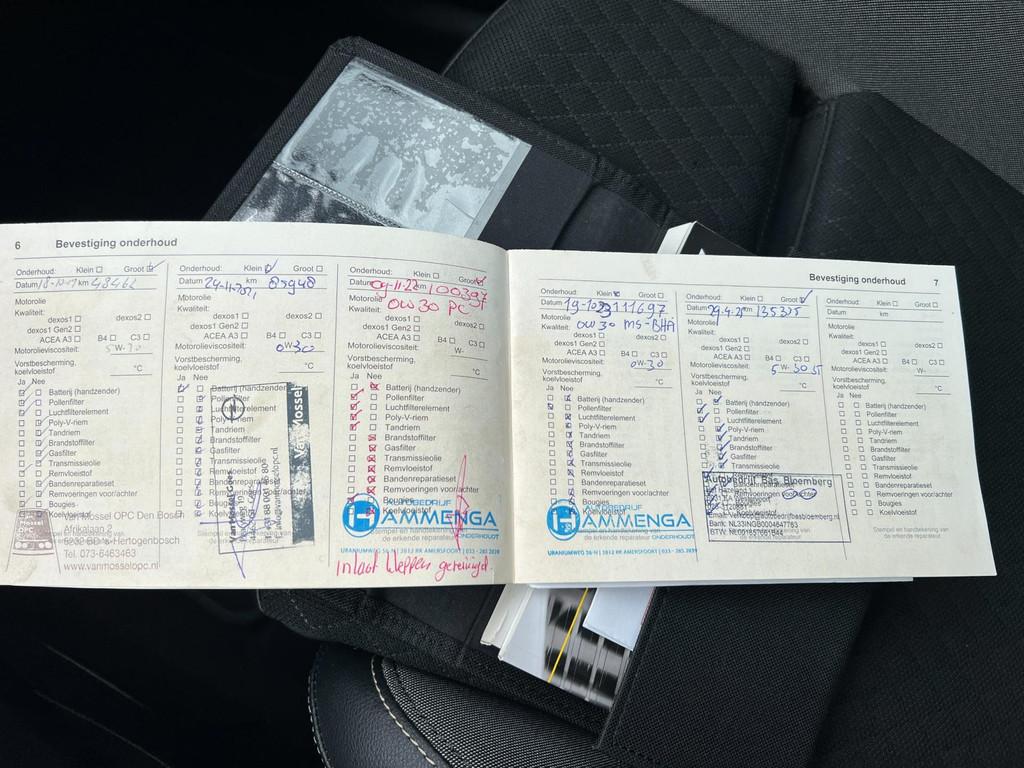 6 Bevestiging onderhoud
Onderhoud: Klein Groot
Datum km 48462
Motorolie
Kwaliteit:
dexos1 dexos2
dexos1 Gen2
ACEA A3 B4 C3
Motorolieviscositeit:
5W-30
Vorstbescherming,
koelvloeistof °C
Ja Nee
Batterij (handzender)
Pollenfilter
Luchtfilterelement
Poly-V-riem
Tandriem
Brandstoffilter
Gasfilter
Transmissieolie
Remvloeistof
Bandenreparatieset
Remvoeringen voor/achter
Bougies
Koelvloeistof
Van Mossel OPC Den Bosch
Afrikalaan 2
5232 BD 's-Hertogenbosch
Tel. 073-6463463
www.vanmosselopc.nl
Onderhoud: Klein Groot
Datum 24-11-2021 km
Motorolie
Kwaliteit:
dexos1 dexos2
dexos1 Gen2
ACEA A3 B4 C3
Motorolieviscositeit:
0W30
Vorstbescherming,
koelvloeistof °C
Ja Nee
Batterij (handzender)
Pollenfilter
Luchtfilterelement
Poly-V-riem
Tandriem
Brandstoffilter
Gasfilter
Transmissieolie
Remvloeistof
Bandenreparatieset
Remvoeringen voor/achter
Bougies
Koelvloeistof
Van Mossel
Onderhoud: Klein Groot
Datum 09-11-22 km 100397
Motorolie
Kwaliteit: 0W30 PC
dexos1 dexos2
dexos1 Gen2
ACEA A3 B4 C3
Motorolieviscositeit:
W-
Vorstbescherming,
koelvloeistof °C
Ja Nee
Batterij (handzender)
Pollenfilter
Luchtfilterelement
Poly-V-riem
Tandriem
Brandstoffilter
Gasfilter
Transmissieolie
Remvloeistof
Bandenreparatieset
Remvoeringen voor/achter
Bougies
Koelvloeistof
AUTOBEDRIJF
HAMMENGA
ONDERHOUDT
URANIUMWEG 56-H | 3812 RR AMERSFOORT | 033 - 285 2839
inlaat kleppen gereinigd.
Bevestiging onderhoud 7
Onderhoud: Klein Groot
Datum 19-10-23 km 111697
Motorolie
Kwaliteit: 0W30 MS-BHA
dexos1 dexos2
dexos1 Gen2
ACEA A3 B4 C3
Motorolieviscositeit:
0W-30
Vorstbescherming,
koelvloeistof °C
Ja Nee
Batterij (handzender)
Pollenfilter
Luchtfilterelement
Poly-V-riem
Tandriem
Brandstoffilter
Gasfilter
Transmissieolie
Remvloeistof
Bandenreparatieset
Remvoeringen voor/achter
Bougies
Koelvloeistof
AUTOBEDRIJF
HAMMENGA
ONDERHOUDT
URANIUMWEG 56-H | 3812 RR AMERSFOORT | 033 - 285 2839
Onderhoud: Klein Groot
Datum km
Motorolie
Kwaliteit:
dexos1 dexos2
dexos1 Gen2
ACEA A3 B4 C3
Motorolieviscositeit:
Vorstbescherming,
koelvloeistof °C
Ja Nee
Batterij (handzender)
Pollenfilter
Luchtfilterelement
Poly-V-riem
Tandriem
Brandstoffilter
Gasfilter
Transmissieolie
Autobedrijf Bas Bloemberg
Remvoeringen voor/achter
Bank: NL33INGB0004847763
Onderhoud: Klein Groot
Datum km
Motorolie
Kwaliteit:
dexos1 dexos2
dexos1 Gen2
ACEA A3 B4 C3
Motorolieviscositeit:
W-
Vorstbescherming,
koelvloeistof °C
Ja Nee
Batterij (handzender)
Pollenfilter
Luchtfilterelement
Poly-V-riem
Tandriem
Brandstoffilter
Gasfilter
Transmissieolie
Remvloeistof
Bandenreparatieset
Remvoeringen voor/achter
Bougies
Koelvloeistof
Stempel en handtekening van
de erkende reparateur